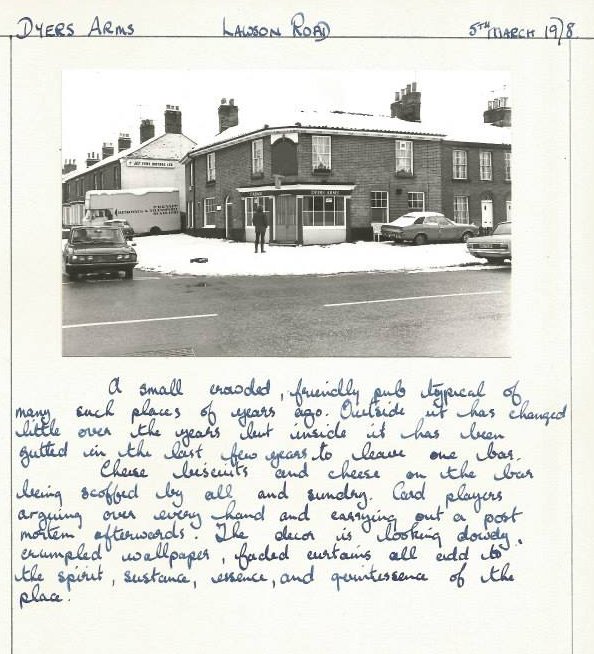 DYERS ARMS LAWSON ROAD 5TH MARCH 1978.
REMOVALS & STORAGE
DYERS ARMS
A small crowded, friendly pub typical of
many such places of years ago. Outside it has changed
little over the years but inside it has been
gutted in the last few years to leave one bar.
Cheese biscuits and cheese on the bar
being scoffed by all and sundry. Card players
arguing over every hand and carrying out a post
mortem afterwards. The decor is looking dowdy,
crumpled wallpaper, faded curtains all add to
the spirit, sustance, essence, and quintessence of the
place.